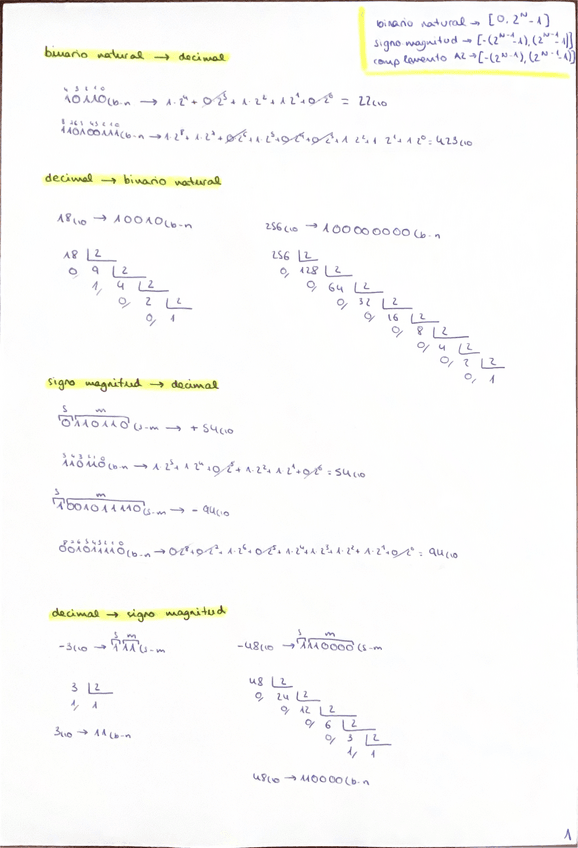 binario natural → [0, 2^N-1]
signo magnitud → [-(2^N-1-1), (2^N-1-1)]
complemento A2 → [-(2^N-1), (2^N-1-1)]
binario natural → decimal
4 3 2 1 0
10110(b-n → 1·2^4 + 0·2^3 + 1·2^2 + 1·2^1 + 0·2^0 = 22(10
110100111(b-n → 1·2^8 + 1·2^7 + 0·2^6 + 1·2^5 + 0·2^4 + 0·2^3 + 1·2^2 + 1·2^1 + 1·2^0 = 423(10
decimal → binario natural
18(10 → 10010(b-n
18 2
0, 9 2
1, 4 2
0, 2 2
0, 1
256(10 → 100000000(b-n
256 2
0, 128 2
0, 64 2
0, 32 2
0, 16 2
0, 8 2
0, 4 2
0, 2 2
0, 1
signo magnitud → decimal
s m
0110110(s-m → + 54(10
5 4 3 2 1 0
110110(b-n → 1·2^5 + 1·2^4 + 0·2^3 + 1·2^2 + 1·2^1 + 0·2^0 = 54(10
s m
1001011110(s-m → - 94(10
8 7 6 5 4 3 2 1 0
001011110(b-n → 0·2^8 + 0·2^7 + 1·2^6 + 0·2^5 + 1·2^4 + 1·2^3 + 1·2^2 + 1·2^1 + 0·2^0 = 94(10
decimal → signo magnitud
s m
-3(10 → 111(s-m
3 2
1, 1
3(10 → 11(b-n
s m
-48(10 → 1110000(s-m
48 2
0, 24 2
0, 12 2
0, 6 2
0, 3 2
1, 1
48(10 → 110000(b-n
1